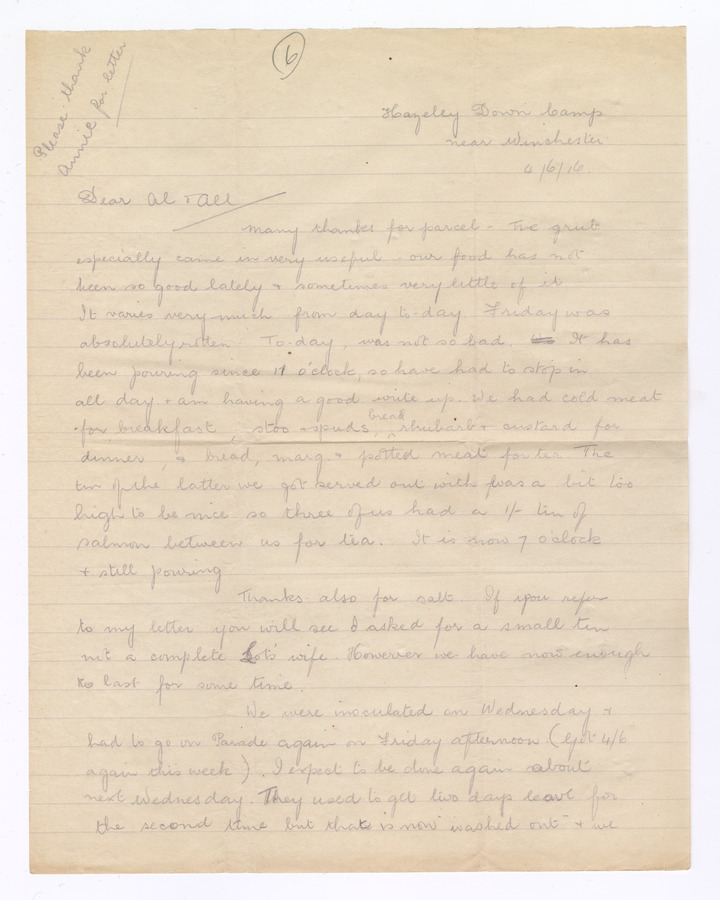 Please thank
Annie for letter
6
Hazeley Down Camp
near Winchester
4/6/16.
Dear Al & All
Many thanks for parcel - The gruit
especially came in very useful - our food has not
been so good lately & sometimes very little of it
It varies very much from day to day Friday was
absolutely rotten. To-day, was not so bad. It has
been pouring since 11 o'clock, so have had to stop in
all day & am having a good write up. We had cold meat
for breakfast, stoo & spuds, bread rhubarb & custard for
dinner, & bread, marg. & potted meat for tea The
tin of the latter we got served out with was a bit too
high to be nice so three of us had a 1/- tin of
salmon between us for tea. It is now 7 o'clock
& still pouring
Thanks also for salt. If you refer
to my letter you will see I asked for a small tin
not a complete Lot's wife. However we have now enough
to last for some time.
We were inoculated on Wednesday &
had to go on Parade again on Friday afternoon (Got 4/6
again this week). I expect to be done again about
next Wednesday. They used to get two days leave for
the second time but that is now washed out & we